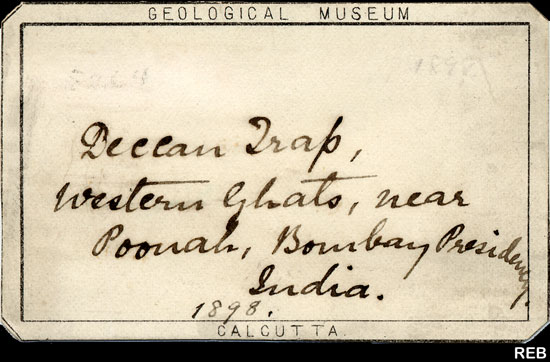 GEOLOGICAL MUSEUM
Deccan Trap,
Western Ghats, near
Poonah, Bombay Presidency,
India.
1898.
CALCUTTA.
REB